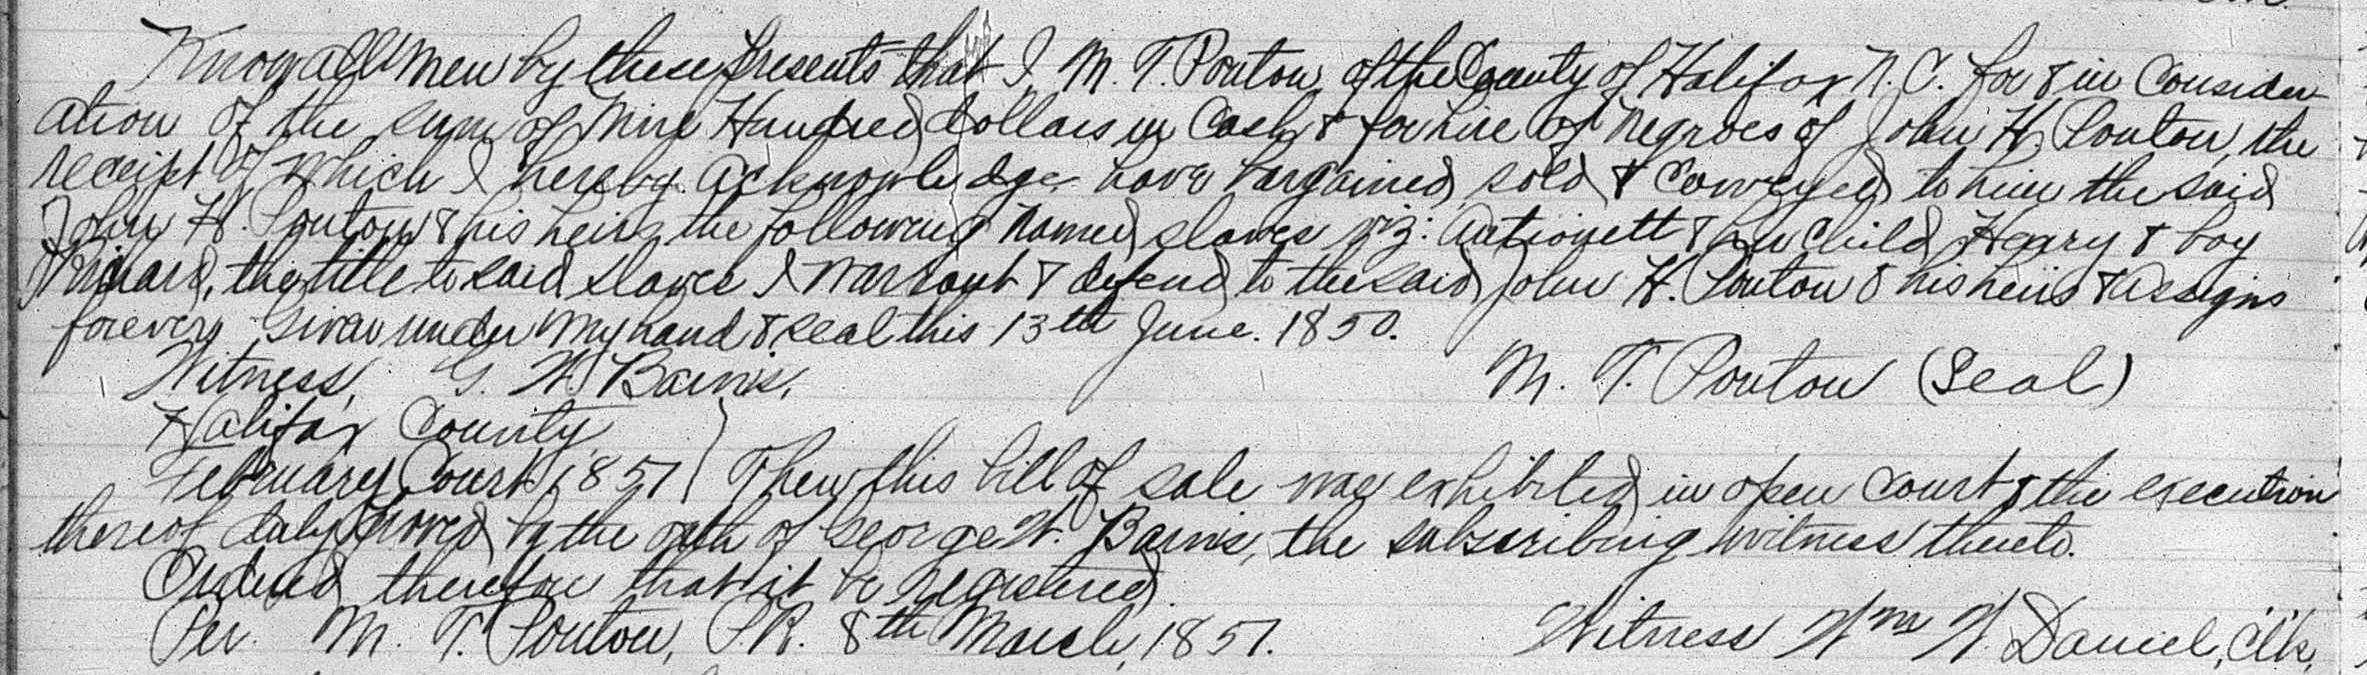 Know all men by these presents that I, M. T. Ponton of the County of Halifax N. C. for & in consider-
ation of the sum of Nine Hundred dollars in cash & for hire of negroes of John H. Ponton, the
receipt of which I hereby acknowledge have bargained, sold & conveyed to him the said
John H. Ponton & his heirs the following named slaves viz: Antionett & her child Henry & boy
Richard, the title to said slaves I warrant & defend to the said John H. Ponton & his heirs & assigns
forever. Given under my hand & seal this 13th June. 1850.
Witness, G. W. Barnes, M. T. Ponton (Seal)
Halifax County,
February Court, 1851 } Then this bill of sale was exhibited in open court & the execution
thereof duly proved by the oath of George W. Barnes, the subscribing witness thereto.
Ordered therefore that it be registered.
Per. M. T. Ponton, P.R. 8th March, 1851. Witness Wm W. Daniel, Clk,